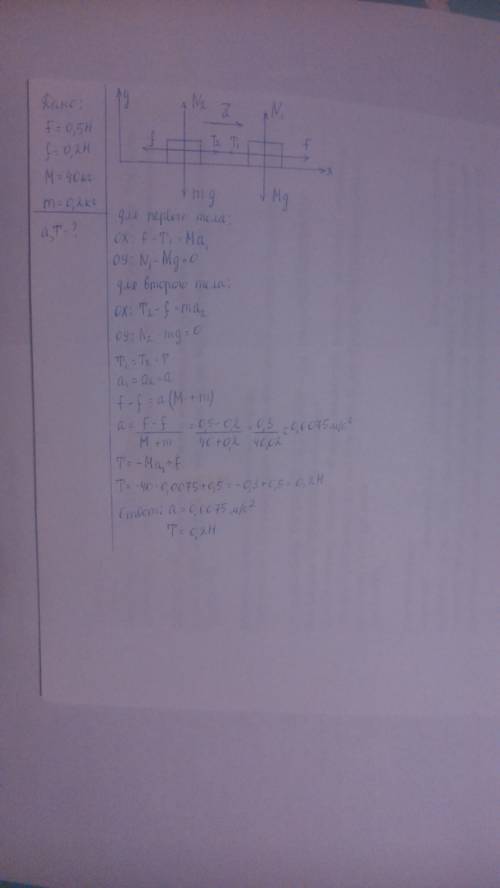 Дано:
F = 0,5Н
f = 0,2Н
M = 40кг
m = 0,2кг
a, T - ?
y
N₂
a
N₁
f
T₂
T₁
F
x
mg
Mg
для первого тела:
OX: F - T₁ = Ma₁
OY: N₁ - Mg = 0
для второго тела:
OX: T₂ - f = ma₂
OY: N₂ - mg = 0
T₁ = T₂ = T
a₁ = a₂ = a
F - f = a(M + m)
a = F - f / M + m = 0,5 - 0,2 / 40 + 0,2 = 0,3 / 40,02 = 0,0075 м/с²
T = -Ma₁ + F
T = -40 · 0,0075 + 0,5 = -0,3 + 0,5 = 0,2Н
Ответ: a = 0,0075 м/с²
T = 0,2Н